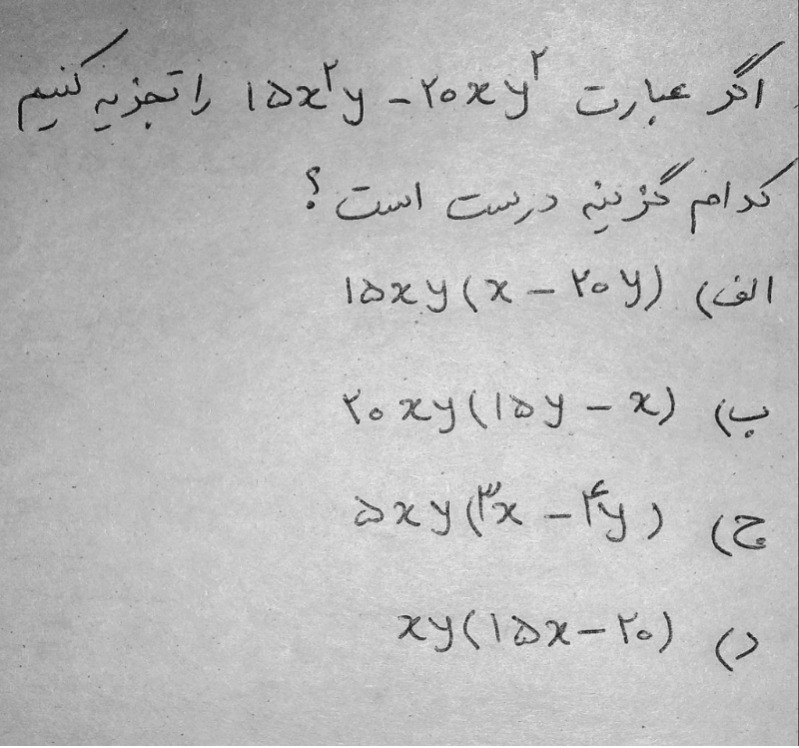 اگر عبارت ۱۵x^۲y - ۲۰xy^۲ را تجزیه کنیم
کدام گزینه درست است؟
الف) ۱۵xy(x - ۲۰y)
ب) ۲۰xy(۱۵y - x)
ج) ۵xy(۳x - ۴y)
د) xy(۱۵x - ۲۰)